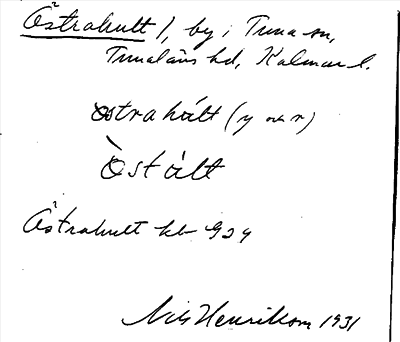 Östrahult /, by i Tuna sn,
Tunaläns hd, Kalmar l.
östrahúlt (y on r)
Òstúlt
Östrahult kb 929
Nils Henrikson 1931